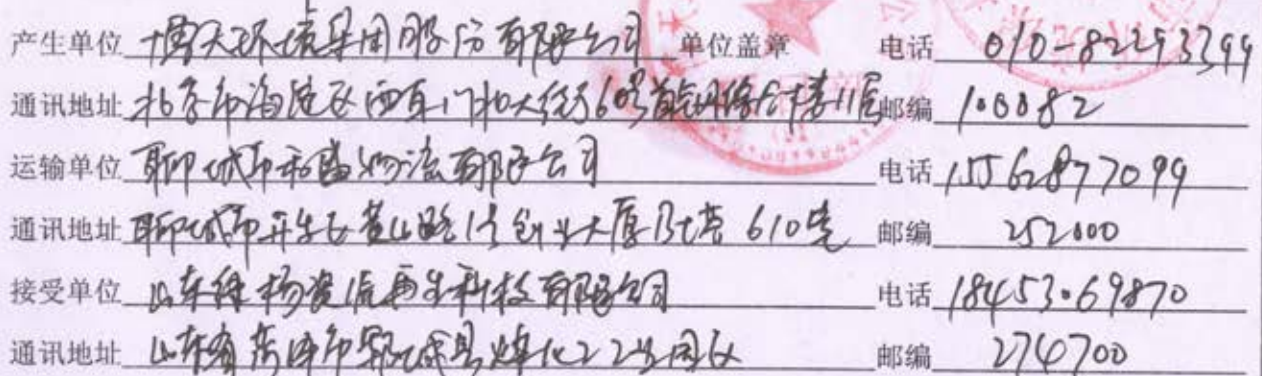 产生单位 博天环境集团股份有限公司 单位盖章 电话 010-82293399
通讯地址 北京市海淀区西直门北大街60号首钢综合楼11层 邮编 100082
运输单位 聊城市和盛物流有限公司 电话 15562877099
通讯地址 聊城市开发区黄山路1号创业大厦B塔610室 邮编 252000
接受单位 山东绿杨资源再生科技有限公司 电话 18453069870
通讯地址 山东省菏泽市郓城县煤化工工业园区 邮编 274700